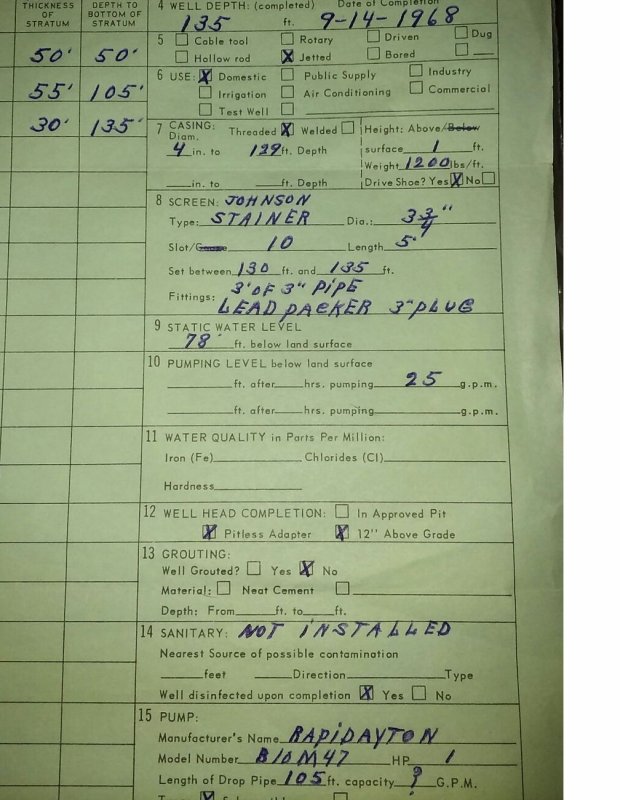 THICKNESS OF STRATUM DEPTH TO BOTTOM OF STRATUM
50' 50'
55' 105'
30' 135'
4 WELL DEPTH: (completed) Date of Completion
135 ft. 9-14-1968
5 Cable tool Rotary Driven Dug
Hollow rod X Jetted Bored
6 USE: X Domestic Public Supply Industry
Irrigation Air Conditioning Commercial
Test Well
7 CASING: Threaded X Welded Height: Above/Below
Diam.
4 in. to 129 ft. Depth surface 1 ft.
Weight 1200 lbs/ft.
in. to ft. Depth Drive Shoe? Yes X No
8 SCREEN: JOHNSON
Type: STAINER Dia.: 3 3/4"
Slot/ 10 Length 5'
Set between 130 ft. and 135 ft.
Fittings: 3' OF 3" PIPE
LEAD PACKER 3" PLUG
9 STATIC WATER LEVEL
78' ft. below land surface
10 PUMPING LEVEL below land surface
ft. after hrs. pumping 25 g.p.m.
ft. after hrs. pumping g.p.m.
11 WATER QUALITY in Parts Per Million:
Iron (Fe) Chlorides (Cl)
Hardness
12 WELL HEAD COMPLETION: In Approved Pit
X Pitless Adapter X 12" Above Grade
13 GROUTING:
Well Grouted? Yes X No
Material: Neat Cement
Depth: From ft. to ft.
14 SANITARY: NOT INSTALLED
Nearest Source of possible contamination
feet Direction Type
Well disinfected upon completion X Yes No
15 PUMP:
Manufacturer's Name RAPIDAYTON
Model Number B10M47 HP 1
Length of Drop Pipe 105 ft. capacity ? G.P.M.